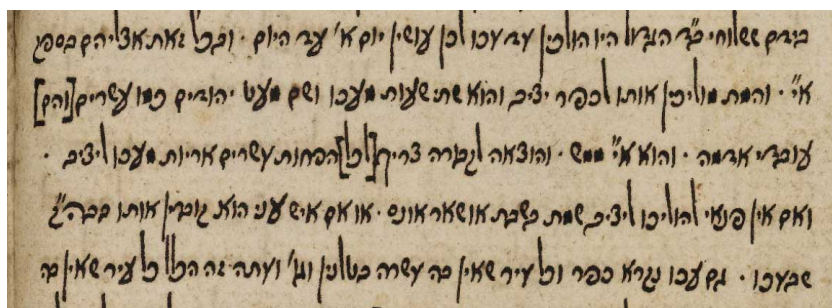 בידם ששלוחי ב״ד הגדול היו הולכין עד עכו לכן עושין יום א׳ עד היום . ובכל זאת אצליהם בספק
א״י . והמת מוליכין אותו לכפר יציב והוא שת שעות מעכו ושם מעט יהודים כמו עשרים [והם]
עובדי אדמה . והוא א״י ממש . והוצאה לקבורה צריך [לכל] הפחות עשרים אריות מעכו ליציב .
ואם אין פנאי להוליכו ליציב שמת בשבת או שאר אונס . או אם איש עני הוא קוברין אותו בבה״ק
שבעכו . גם עכו נקרא כפר וכל עיר שאין בה עשרה בטלנין וגו׳ ועתה זה הכלל כל עיר שאין בה